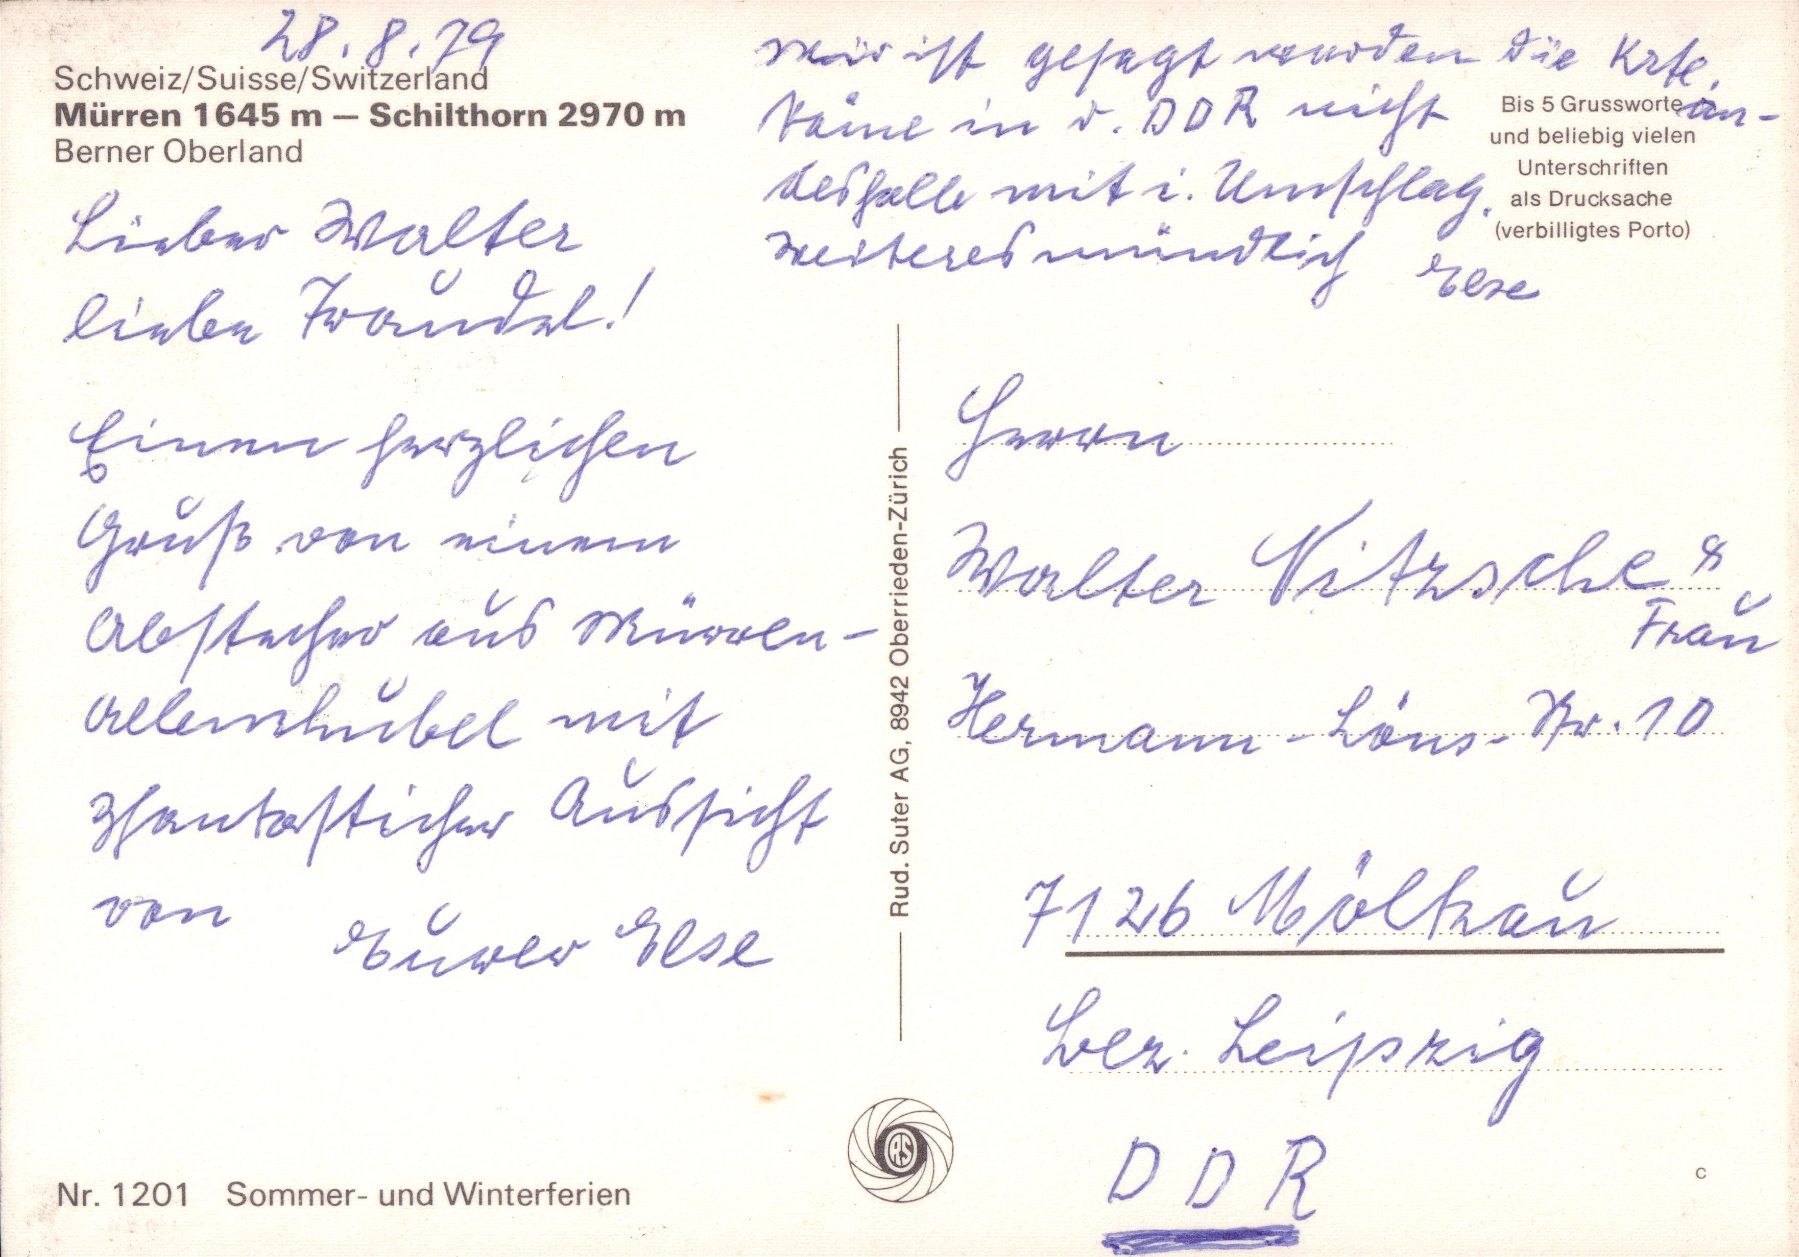 28.8.79
Schweiz/Suisse/Switzerland
Mürren 1645 m – Schilthorn 2970 m
Berner Oberland
Lieber Walter
liebe Traudel!
Einen herzlichen
Gruß von einem
Abstecher aus Mürren-
Allmenhubel mit
phantasticher Aussicht
von
Eurer Else
Nr. 1201 Sommer- und Winterferien
Rud. Suter AG, 8942 Oberrieden-Zürich
RS
Mir ist gesagt worden die Krte.
käme in d. DDR nicht an-
desfalls mit i. Umschlag.
weiteres mündlich Else
Bis 5 Grussworte
und beliebig vielen
Unterschriften
als Drucksache
(verbilligtes Porto)
Herrn
Walter Nitzsche &
Frau
Hermann-Löns-Str. 10
7126 Mölkau
Bez. Leipzig
DDR
c